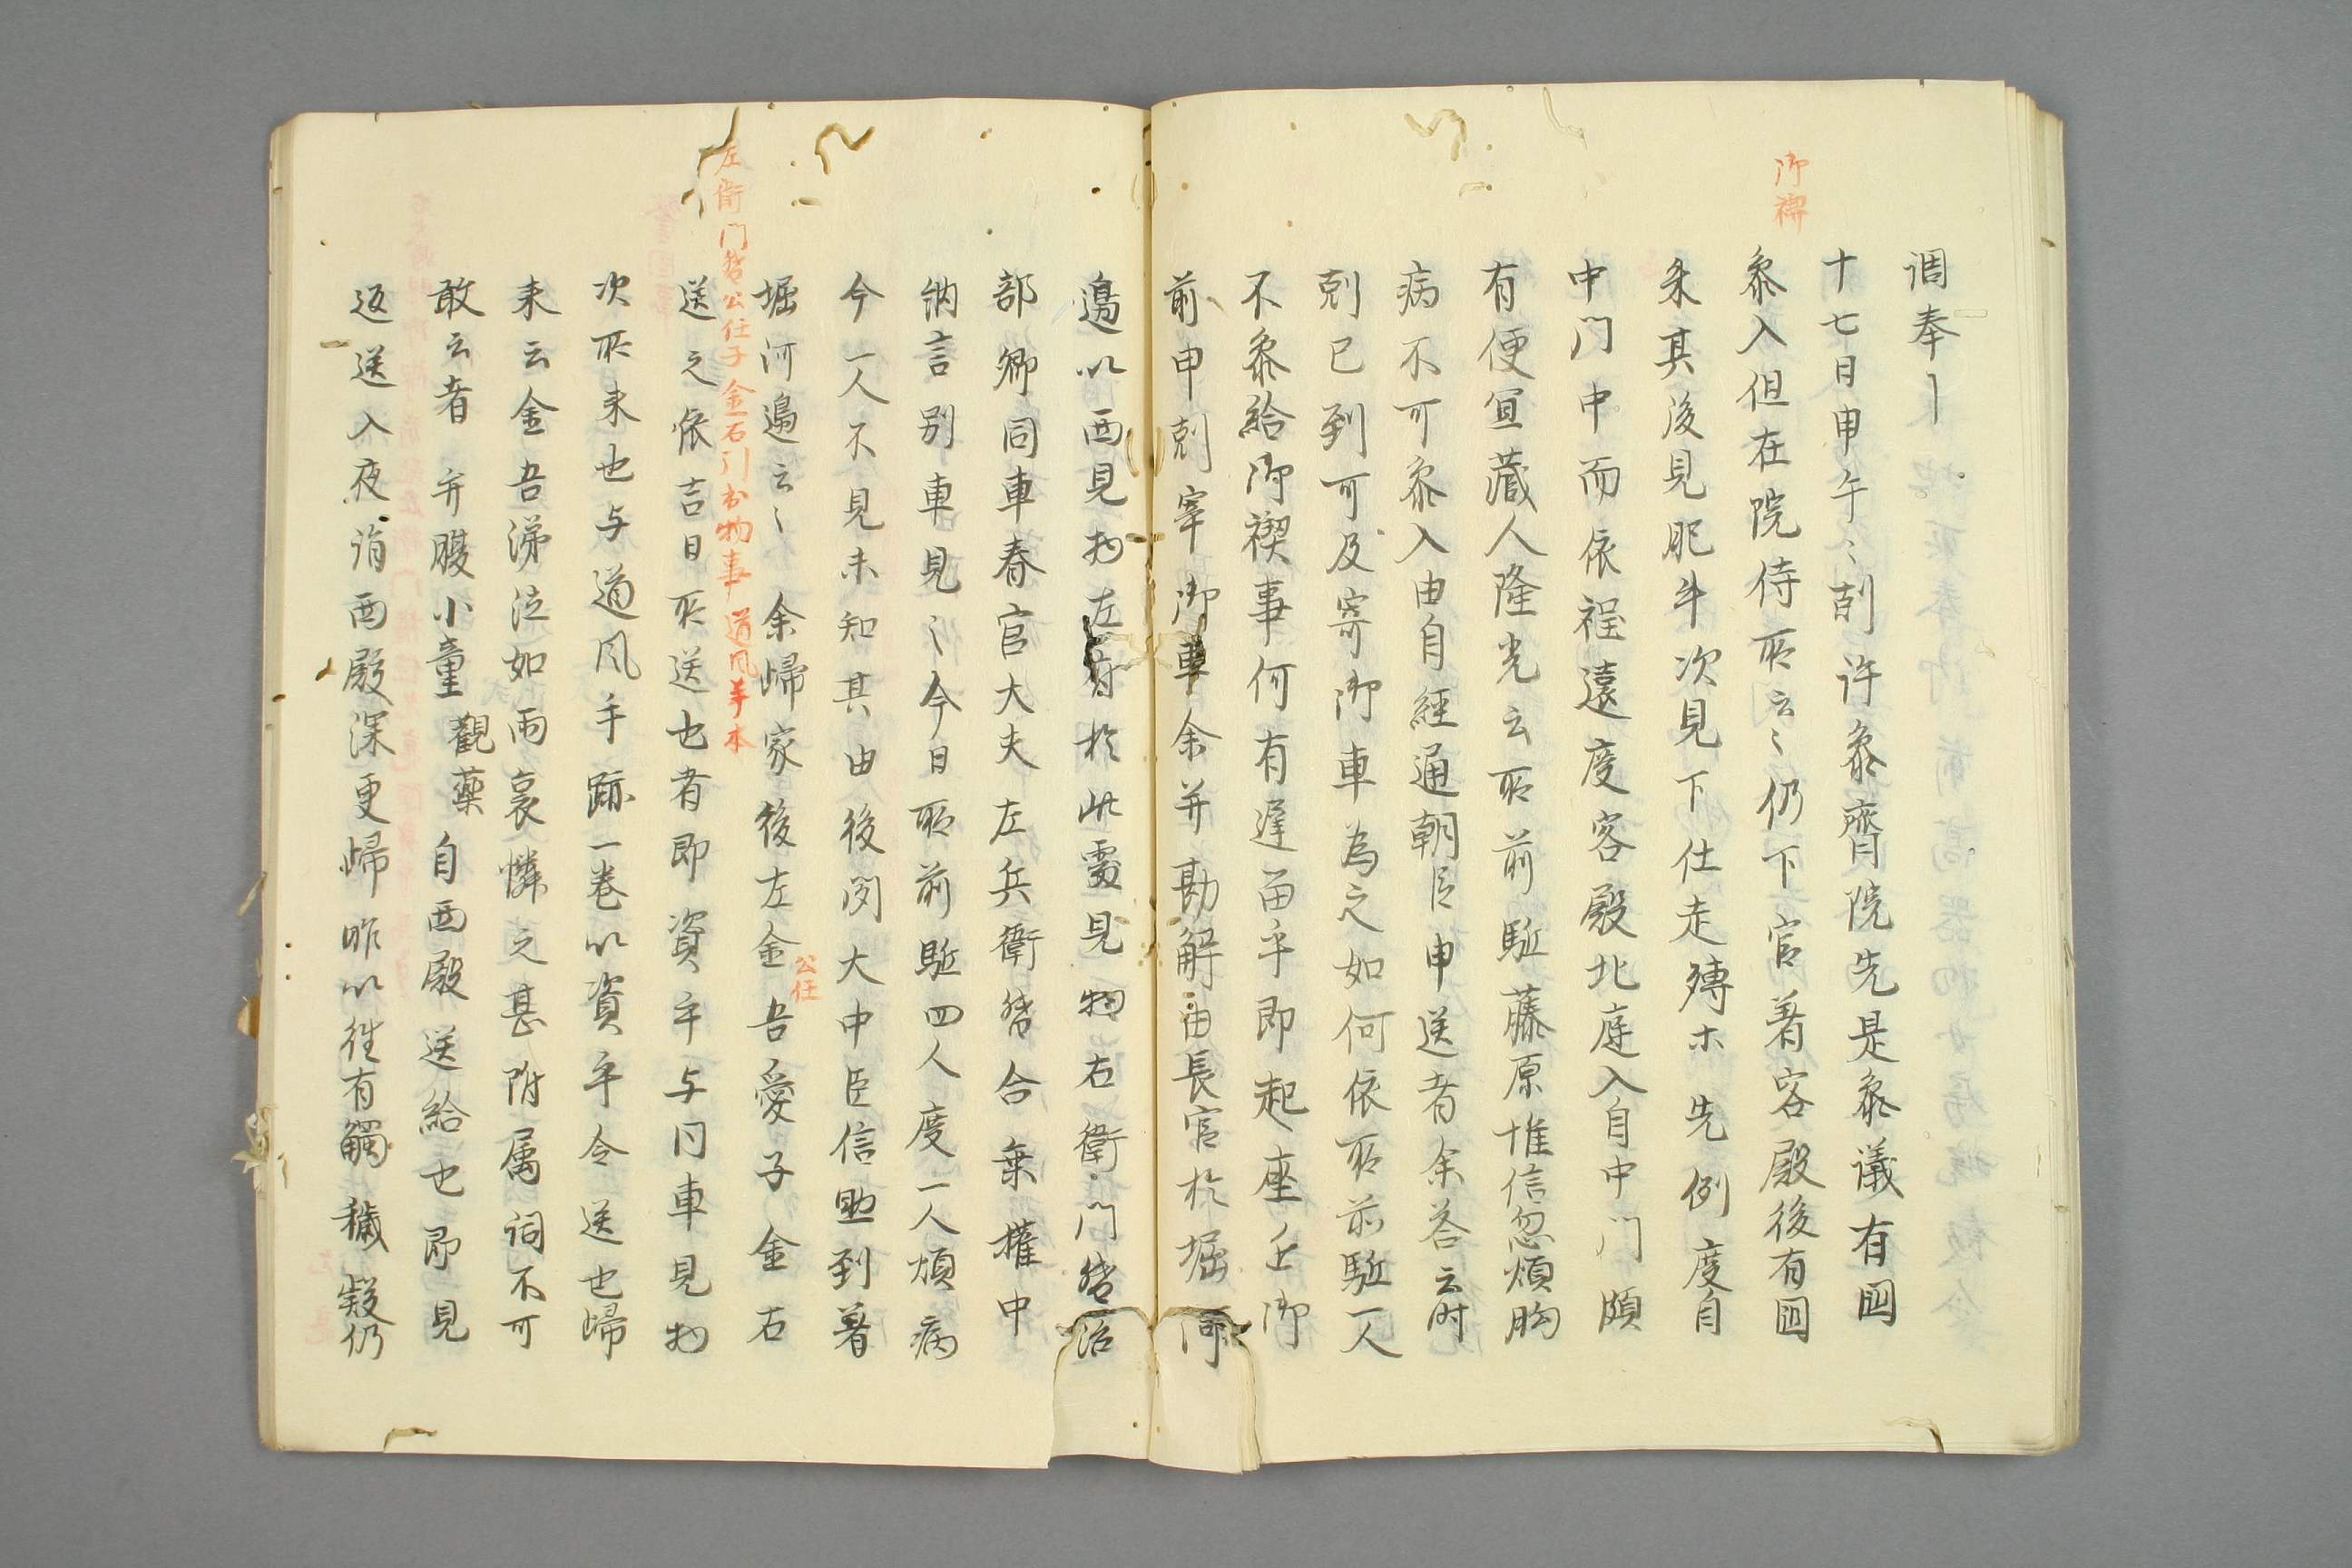 調奉
御禊
十七日甲午〻剋許參齊院先是參議有国
參入但在院侍所云〻仍下官着客殿後有国
来其後見肥牛次見下仕走孀木先例度自
中門中而依程遠度客殿北庭入自中門頗
有便宜蔵人隆光云所前駈藤原惟信忽煩胸
病不可參入由自經通朝臣申送者余答云時
剋已到可及寄御車為之如何依所前駈一人
不參給御禊事何有遅留乎即起座近御
前申剋寄御車余并勘解由長官於堀河
邉以西見物左府於此處見物右衛門督治
部卿同車春宮大夫左兵衛督合乗權中
納言別車見〻今日所前駈四人度一人煩病
今一人不見未知其由後聞大中臣信助到着
堀河邉云〻余帰家後左金吾愛子金石
公任
左衛門督公任子金石引出物事道風手本
送之依吉日所送也者即資平与同車見物
次所来也与道風手跡一巻以資平令送也帰
来云金吾涕泣如雨哀憐之甚附属詞不可
敢云者并腹小童觀藥自西殿送給也即見
返送入夜詣西殿深更帰昨以往有觸穢疑仍